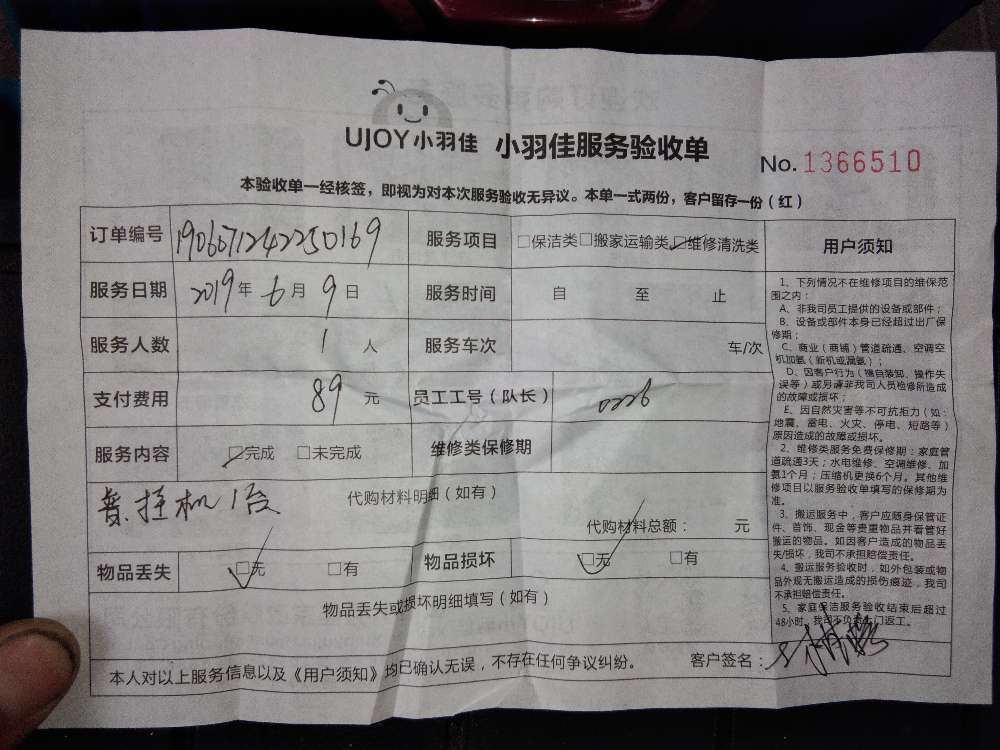 UJOY小羽佳 小羽佳服务验收单
No. 1366510
本验收单一经核签，即视为对本次服务验收无异议。本单一式两份，客户留存一份（红）
订单编号 1906071242250169 服务项目 □保洁类□搬家运输类□维修清洗类
服务日期 2019年6月9日 服务时间 自 至 止
服务人数 1人 服务车次 车/次
支付费用 89元 员工工号（队长） 0226
服务内容 □完成 □未完成 维修类保修期
普挂机1台 代购材料明细（如有）
代购材料总额： 元
物品丢失 □无 □有 物品损坏 □无 □有
物品丢失或损坏明细填写（如有）
本人对以上服务信息以及《用户须知》均已确认无误，不存在任何争议纠纷。 客户签名：
用户须知
1、下列情况不在维修项目的维保范
围之内：
A、非我司员工提供的设备或部件；
B、设备或部件本身已经超过出厂保
修期；
C、商业（商铺）管道疏通、空调空
机加氨（新机或漏氨）；
D、因客户行为（擅自装卸、操作失
误等）或另请非我司人员检修所造成
的故障或损坏；
E、因自然灾害等不可抗拒力（如：
地震、雷电、火灾、停电、短路等）
原因造成的故障或损坏。
2、维修类服务免费保修期：家庭管
道疏通3天；水电维修、空调维修、加
氨1个月；压缩机更换6个月。其他维
修项目以服务验收单填写的保修期为
准。
3、搬运服务中，客户应随身保管证
件、首饰、现金等贵重物品并看管好
搬运的物品。如因客户造成的物品丢
失/损坏，我司不承担赔偿责任。
4、搬运服务验收时，如外包装或物
品外观无搬运造成的损伤痕迹，我司
不承担赔偿责任。
5、家庭保洁服务验收结束后超过
48小时，我司不负责上门返工。